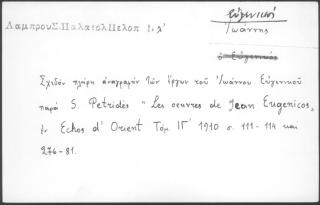 Εὐγενικός
Λαμπρου Σ. Παλαιολ Πελοπ Ι. λ'
Ἰωάννης
ὁ Εὐγενικός
Σχεδὸν πλήρη ἀναγραφὴν τῶν ἔργων τοῦ Ἰωάννου Εὐγενικοῦ
παρὰ S. Petridès "Les oeuvres de Jean Eugenicos,
ἐν Echos d'Orient Τόμ. ΙΓ' 1910 σ. 111-114 και
276-81.